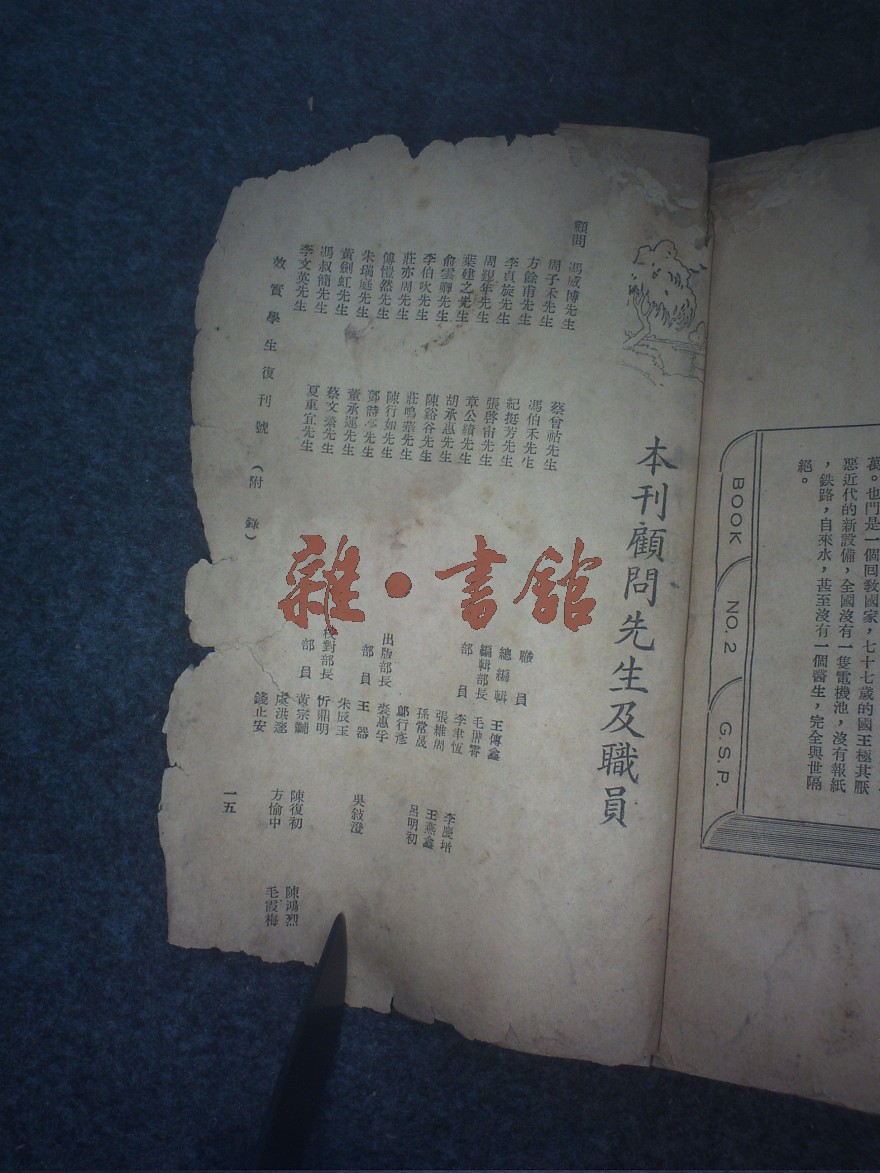 萬。也門是一個回教國家,七十七歲的國王極其厭
惡近代的新設備,全國沒有一隻電機池,沒有報紙
,鉄路,自來水,甚至沒有一個醫生,完全與世隔
絕。
BOOK NO.2 G.S.P.
本刊顧問先生及職員
顧問 馮威博先生
周子禾先生
方餘甫先生
李貞旅先生
周覲年先生
葉建之先生
俞雲卿先生
李伯吹先生
莊亦周先生
傅愷然先生
朱瑞庭先生
黃劍虹先生
馮叔簡先生
李文英先生
蔡曾祜先生
馮伯禾先生
紀挺芳先生
張啓宙先生
章公績先生
胡承惠先生
陳谿谷先生
莊鳴棻先生
陳行如先生
鄧先生
董承運先生
蔡文先生
夏重宜先生
職員
總編輯 王傳鑫
編輯部長 毛
部員 李聿恆 李慶
張維周 王燕鑫
孫常晟 呂明初
鄔行彥
出版部長 裘惠
部員 王器 吳敍澄
朱辰玉
校對部長 忻鼎明
部員 黃宗 陳復初 陳鴻烈
虞洪 方愉中 毛霞梅
錢止安
效實學生復刊號(附錄)
一五
雜·書館